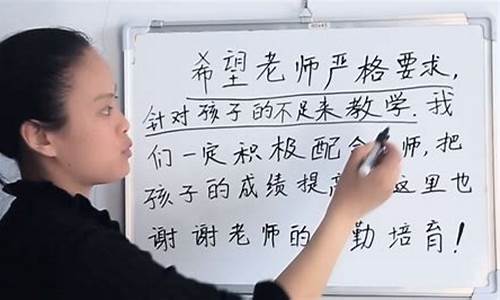 希望老师严格要求,
针对孩子的不足来教学.我
们一定积极配合 师,把
孩子的成绩提 这里也
谢谢老师的 勤培育!